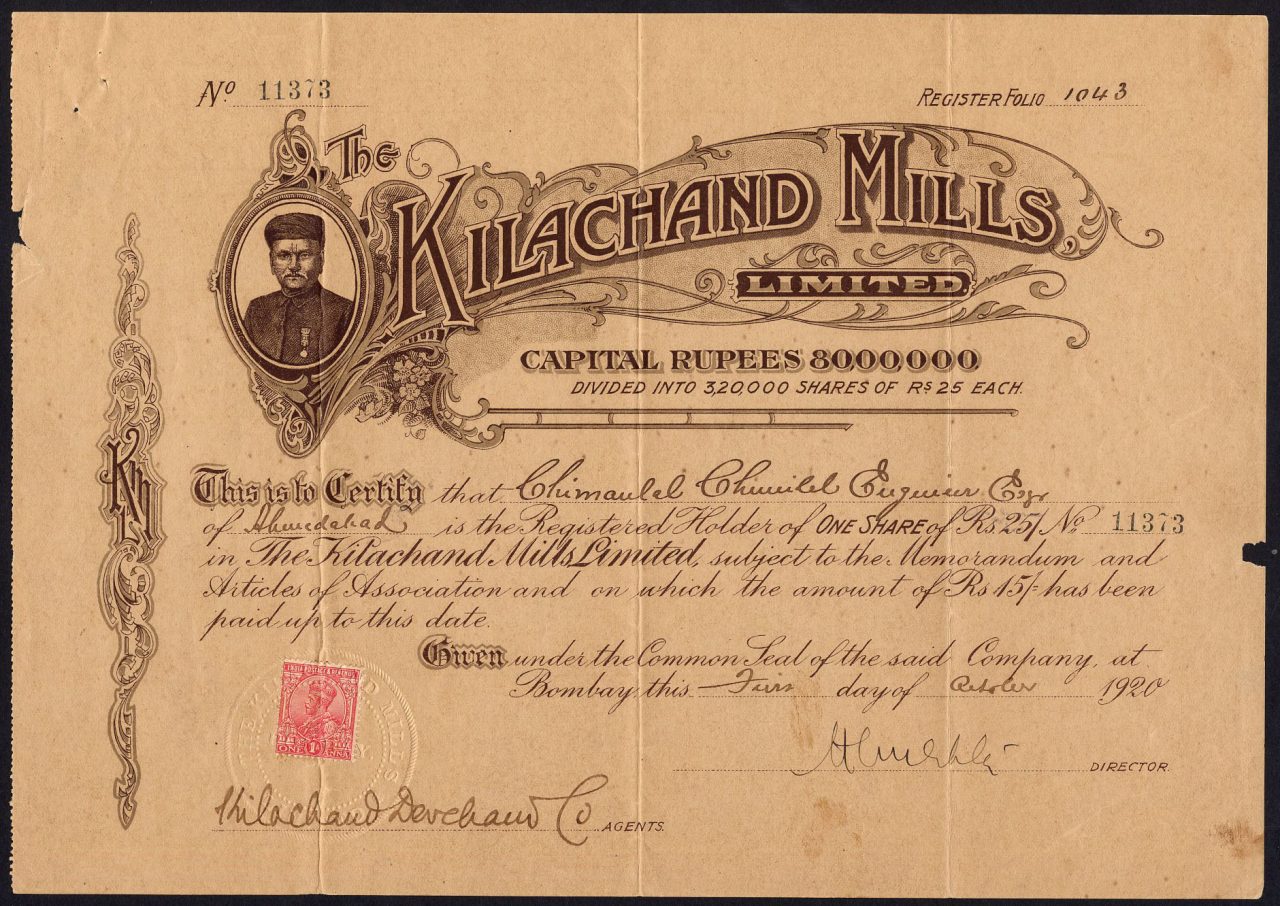 No 11373
REGISTER FOLIO 1043
The
KILACHAND MILLS,
LIMITED.
CAPITAL RUPEES 80,00,000.
DIVIDED INTO 3,20,000 SHARES OF RS 25 EACH.
This is to Certify that Chimanlal Chunilal Engineer Esqr
of Ahmedabad is the Registered Holder of ONE SHARE of Rs. 25/- No 11373
in The Kilachand Mills Limited, subject to the Memorandum and
Articles of Association and on which the amount of Rs 15/- has been
paid up to this date.
Given under the Common Seal of the said Company, at
Bombay, this First day of October 1920
INDIA POSTAGE & REVENUE
ONE 1A ANNA
THE KILACHAND MILLS
DIRECTOR.
Kilachand Devchand Co AGENTS.